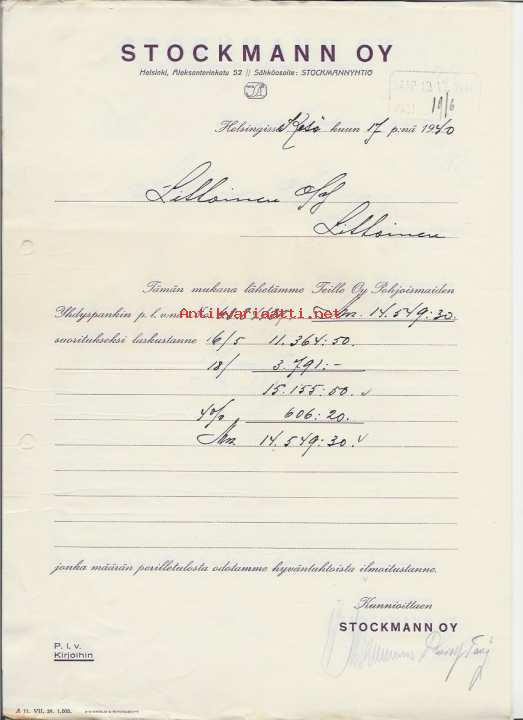 STOCKMANN OY
Helsinki, Aleksanterinkatu 52 || Sähköosoite: STOCKMANNYHTIÖ
19/6
Helsingissä Kesä kuun 17 p:nä 1940
Littoinen O/Y
Littoinen
Tämän mukana lähetämme Teille Oy Pohjoismaiden
Antikvariaatti.net
Yhdyspankin p. l. v:na 14.549:30.
suoritukseksi laskustanne 16/5 11.364:50.
18/ 3.791:-
15.155:50.
4% 606:20.
Smk. 14.549:30.
jonka määrän perilletulosta odotamme hyväntahtoista ilmoitustanne.
Kunnioittaen
STOCKMANN OY
P. l. v.
Kirjoihin
A 11. VII. 39. 1.000.